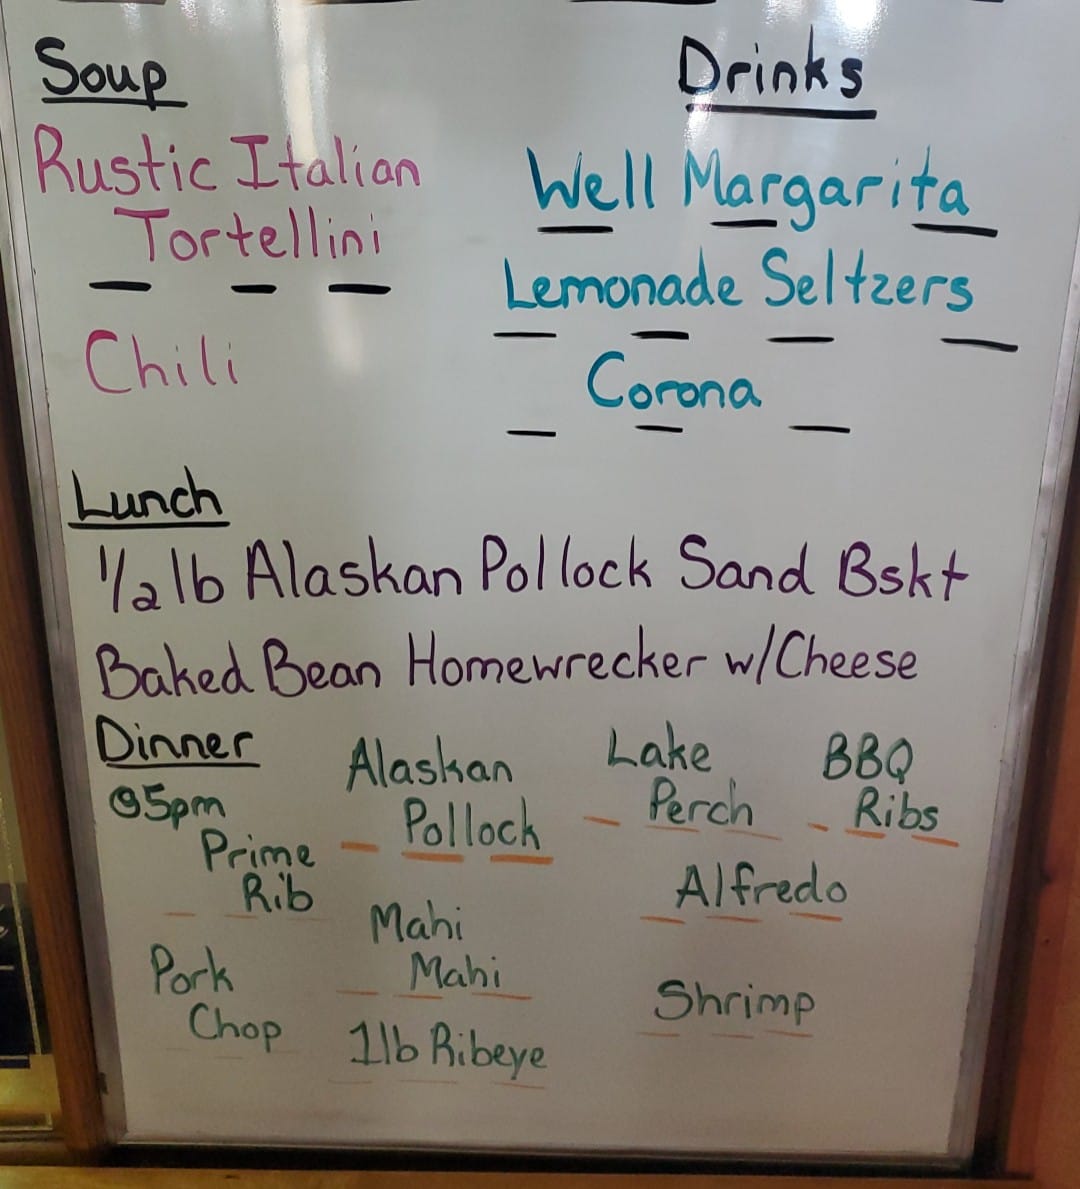 Soup
Rustic Italian
Tortellini
Chili
Drinks
Well Margarita
Lemonade Seltzers
Corona
Lunch
1/2 lb Alaskan Pollock Sand Bskt
Baked Bean Homewrecker w/Cheese
Dinner
@5pm
Prime
Rib
Pork
Chop
Alaskan
Pollock
Mahi
Mahi
1lb Ribeye
Lake
Perch
BBQ
Ribs
Alfredo
Shrimp